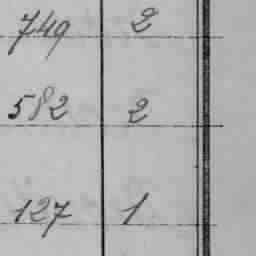 749 2
582 2
127 1